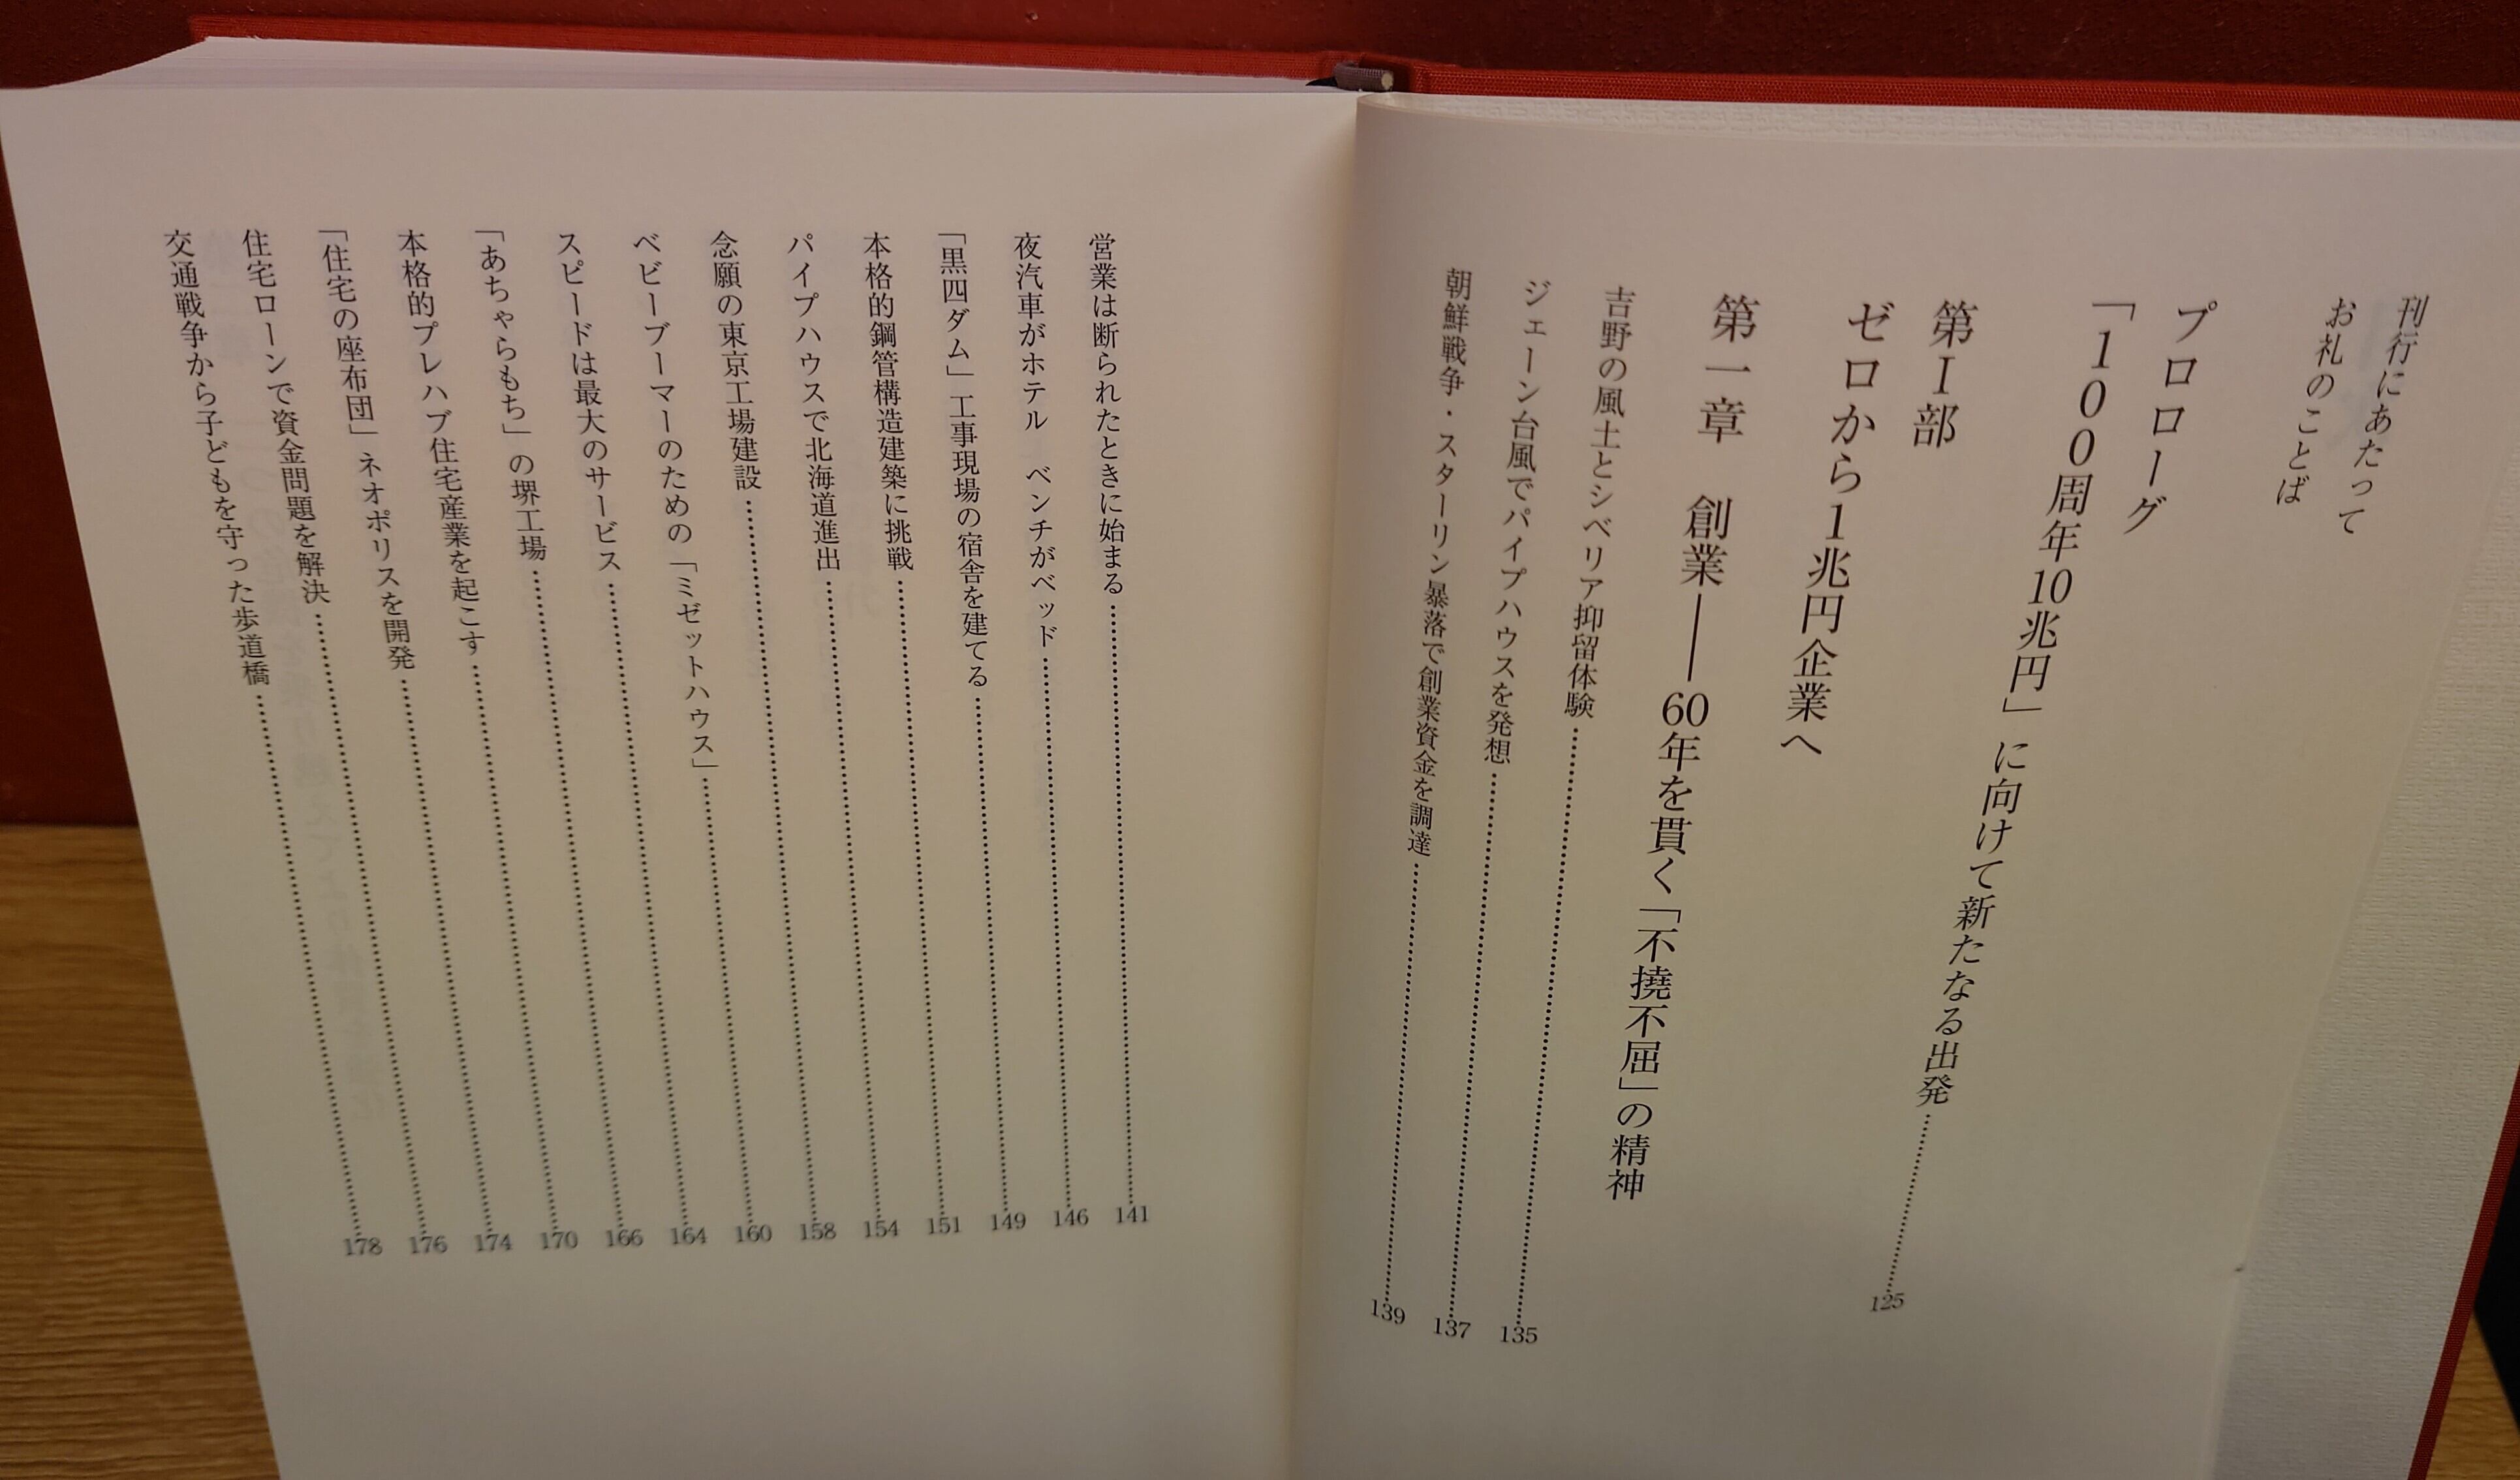 刊行にあたって
お礼のことば
プロローグ
「100周年10兆円」に向けて新たなる出発 125
第Ⅰ部
ゼロから1兆円企業へ
第一章 創業――60年を貫く「不撓不屈」の精神
吉野の風土とシベリア抑留体験 135
ジェーン台風でパイプハウスを発想 137
朝鮮戦争・スターリン暴落で創業資金を調達 139
営業は断られたときに始まる 141
夜汽車がホテル ベンチがベッド 146
「黒四ダム」工事現場の宿舎を建てる 149
本格的鋼管構造建築に挑戦 151
パイプハウスで北海道進出 154
念願の東京工場建設 158
ベビーブーマーのための「ミゼットハウス」 160
スピードは最大のサービス 164
「あちゃらもち」の堺工場 166
本格的プレハブ住宅産業を起こす 170
「住宅の座布団」ネオポリスを開発 174
住宅ローンで資金問題を解決 176
交通戦争から子どもを守った歩道橋 178